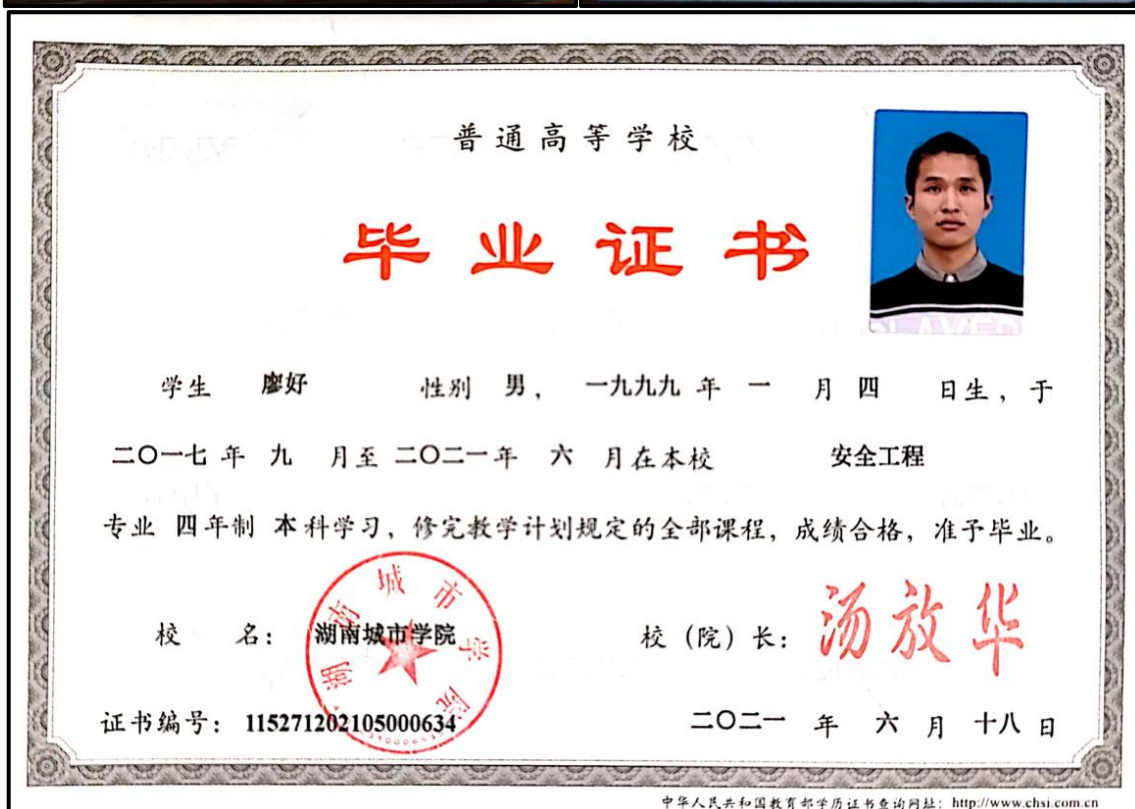 普通高等学校
毕业证书
学生 廖好 性别 男, 一九九九 年 一 月 四 日生, 于
二〇一七 年 九 月至 二〇二一年 六 月在本校 安全工程
专业 四年制 本科学习, 修完教学计划规定的全部课程, 成绩合格, 准予毕业。
校 名: 湖南城市学院 校 (院) 长: 汤放华
湖南城市学院
证书编号: 115271202105000634 二〇二一 年 六 月 十八 日
中华人民共和国教育部学历证书查询网址: http://www.chsi.com.cn